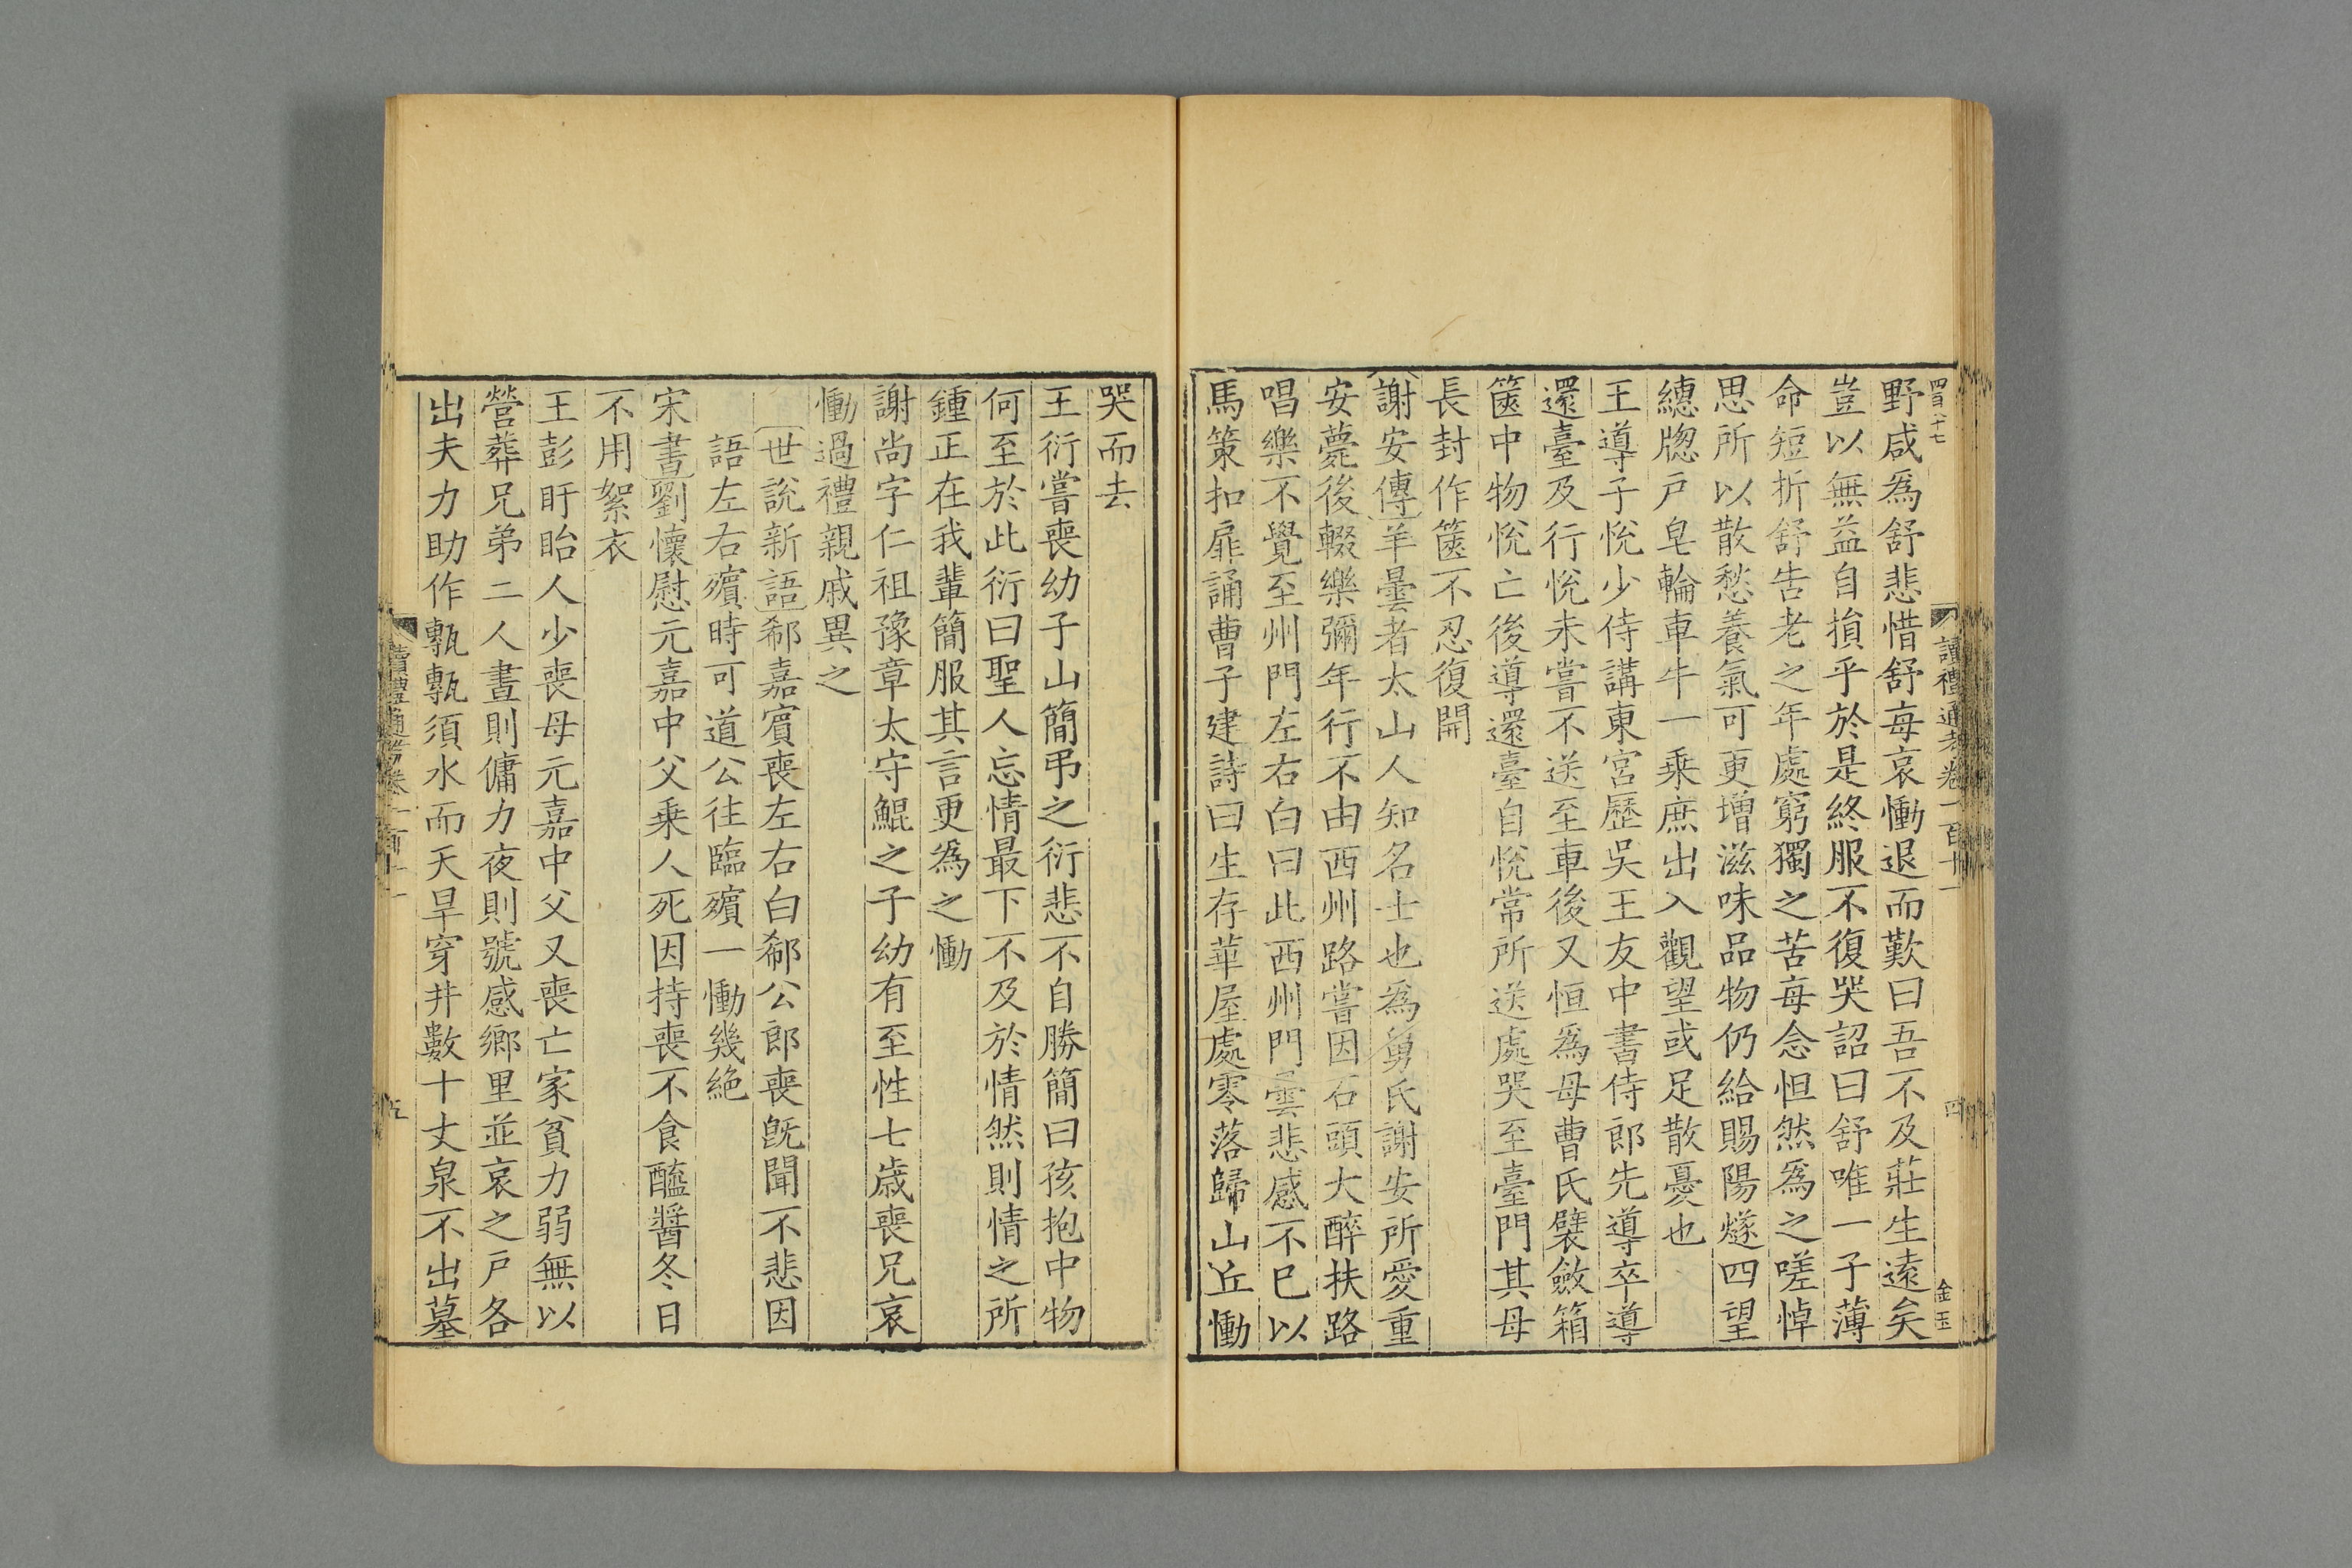 四百八十七
讀禮通考卷一百十一
四
金玉
野咸爲舒悲惜舒每哀慟退而歎曰吾不及莊生遠矣
豈以無益自損乎於是終服不復哭詔曰舒唯一子薄
命短折舒告老之年處窮獨之苦每念怛然爲之嗟悼
思所以散愁養氣可更增滋味品物仍給賜陽燧四望
繐牕戸皂輪車牛一乗庶出入觀望或足散憂也
王導子悅少侍講東宮歷吳王友中書侍郎先導卒導
還臺及行悅未嘗不送至車後又恒爲母曹氏襞斂箱
篋中物悅亡後導還臺自悅常所送處哭至臺門其母
長封作篋不忍復開
謝安傳羊曇者太山人知名士也爲舅氏謝安所愛重
安薨後輟樂彌年行不由西州路嘗因石頭大醉扶路
唱樂不覺至州門左右白曰此西州門曇悲感不巳以
馬策扣扉誦曹子建詩曰生存華屋處零落歸山丘慟
哭而去
王衍嘗喪幼子山簡弔之衍悲不自勝簡曰孩抱中物
何至於此衍曰聖人忘情最下不及於情然則情之所
鍾正在我輩簡服其言更爲之慟
謝尚字仁祖豫章太守鯤之子幼有至性七歲喪兄哀
慟過禮親戚異之
世說新語郗嘉賓喪左右白郗公郎喪旣聞不悲因
語左右殯時可道公往臨殯一慟幾絶
宋書劉懷慰元嘉中父乗人死因持喪不食醯醬冬日
不用絮衣
王彭盱眙人少喪母元嘉中父又喪亡家貧力弱無以
營葬兄弟二人晝則傭力夜則號感鄉里並哀之戸各
出夫力助作甎甎須水而天旱穿井數十丈泉不出墓
讀禮通考卷一百十一
五